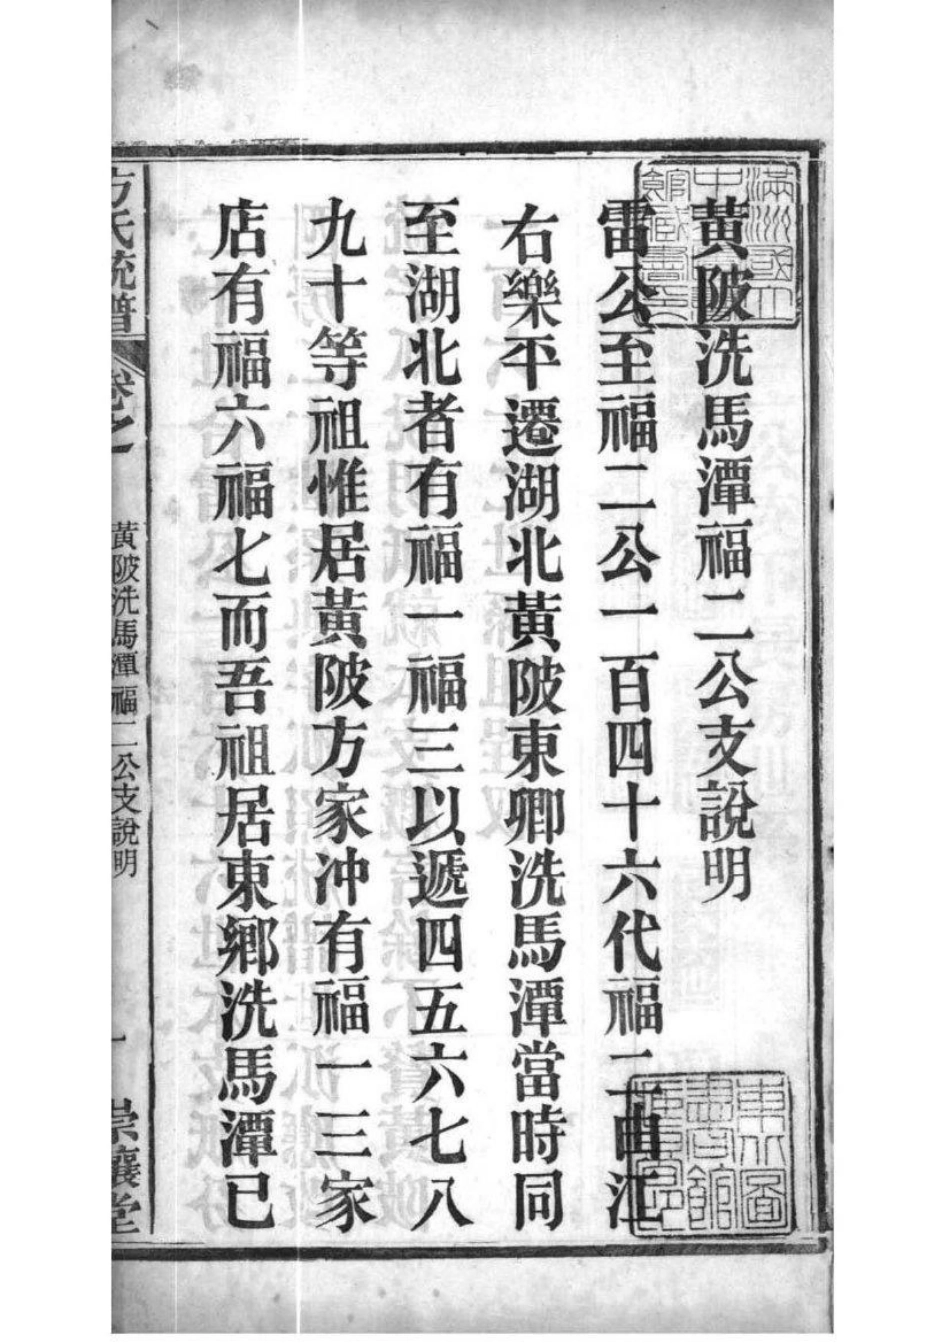 黃陂洗馬潭福二公支說明
雷公至福二公一百四十六代福二由江
右樂平遷湖北黃陂東卿洗馬潭當時同
至湖北者有福一福三以遞四五六七八
九十等祖惟居黃陂方家冲有福一三家
店有福六福七而吾祖居東鄉洗馬潭已
方氏統譜
卷之
黃陂洗馬潭福二公支說明
一
崇讓堂